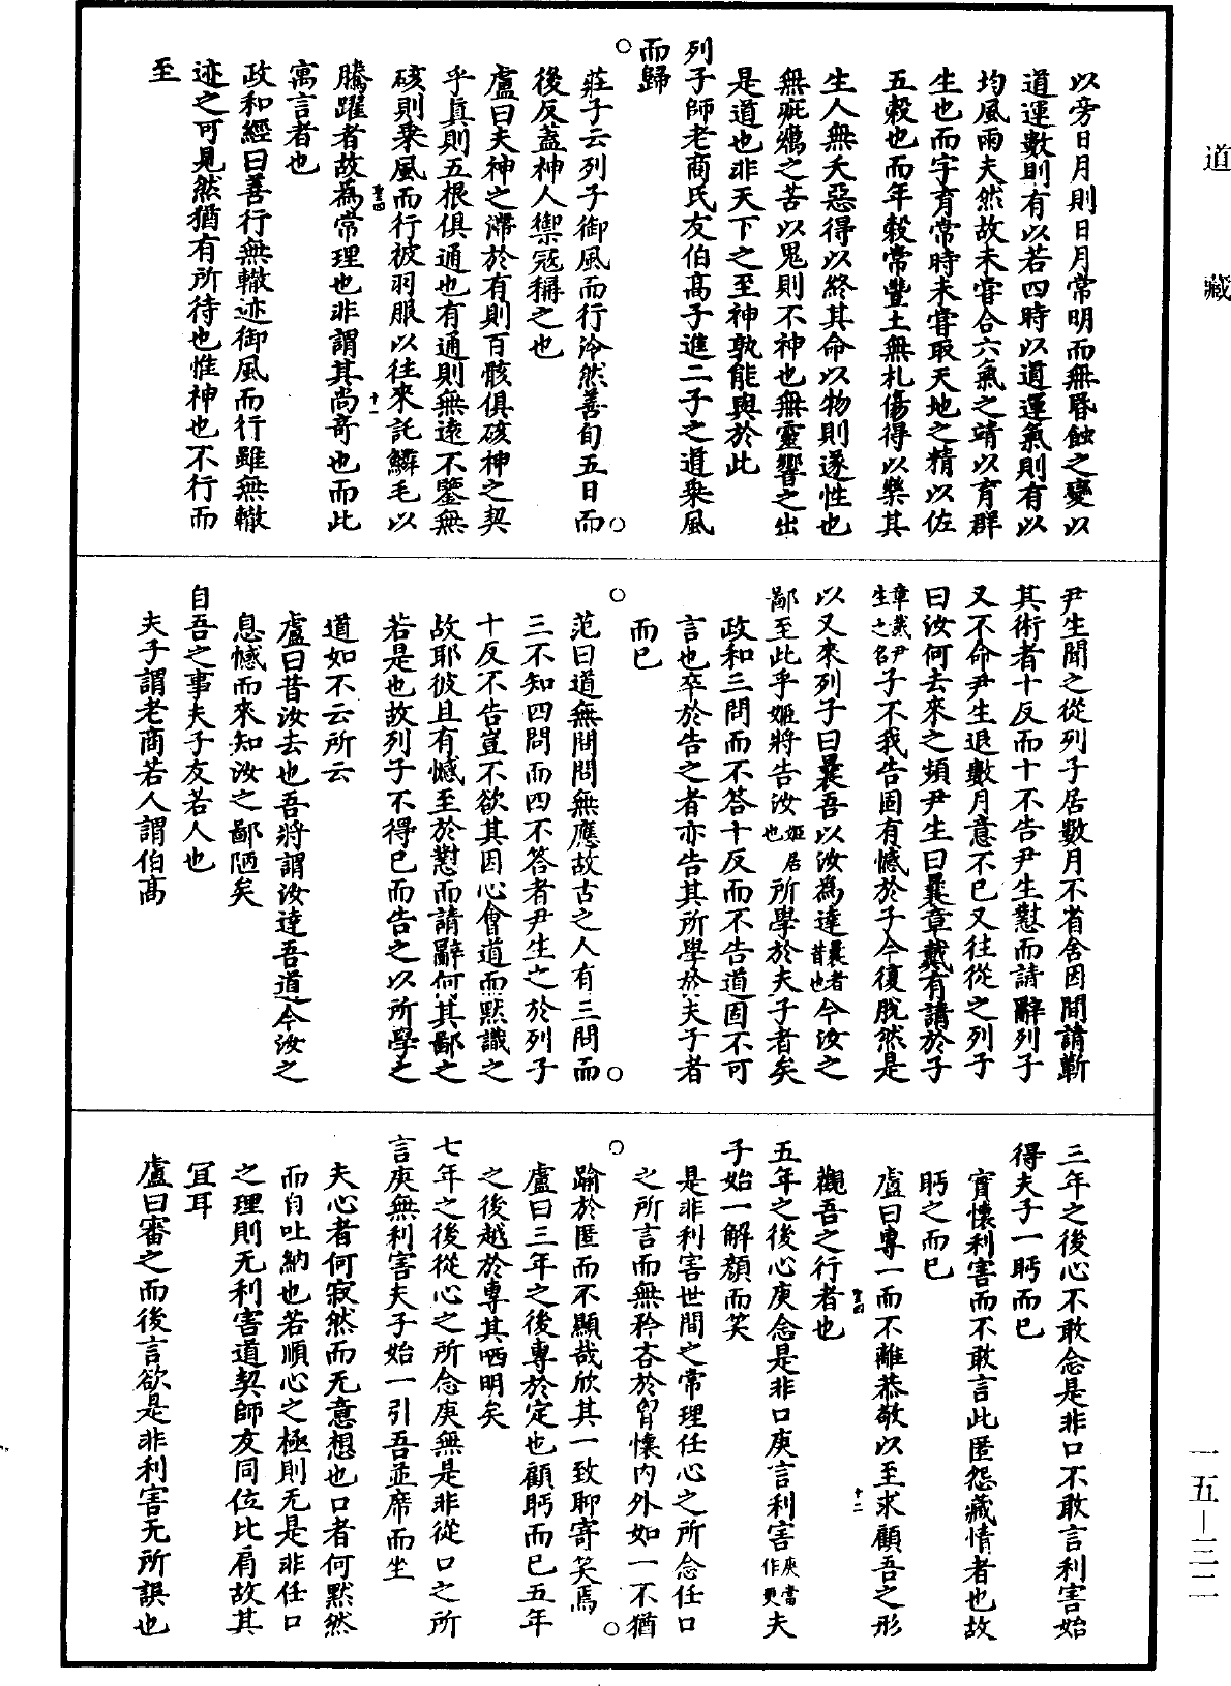 道藏
以旁日月則日月常明而無昬蝕之變以
道運數則有以若四時以道運氣則有以
均風雨夫然故未嘗合六氣之靖以育群
生也而字育常時未嘗取天地之精以佐
五穀也而年穀常豐土無札傷得以樂其
生人無夭惡得以終其命以物則遂性也
無疵癘之苦以鬼則不神也無靈響之出
是道也非天下之至神孰能與於此
列子師老商氏友伯高子進二子之道乗風
而歸
莊子云列子御風而行泠然善旬五日而
後反蓋神人禦冠稱之也
盧曰夫神之滯於有則百骸俱硋神之契
乎真則五根俱通也有通則無遠不鑒無
硋則乗風而行被羽服以往來託鱗毛以
騰躍者故為常理也非謂其尚奇也而此
寓言者也
政和經曰善行無轍迹御風而行雖無轍
迹之可見然猶有所待也惟神也不行而
至
尹生聞之從列子居數月不省舍因間請蘄
其術者十反而十不告尹生懟而請辭列子
又不命尹生退數月意不已又往從之列子
曰汝何去來之頻尹生曰曩章戴有請於子
章戴尹生之名子不我告固有憾於子今復脫然是
以又來列子曰曩吾以汝為達曩者昔也今汝之
鄙至此乎姬將告汝姬居也所學於夫子者矣
政和三問而不答十反而不告道固不可
言也卒於告之者亦告其所學於夫子者
而已
范曰道無問問無應故古之人有三問而
三不知四問而四不答者尹生之於列子
十反不告豈不欲其因心會道而黙識之
故耶彼且有憾至於懟而請辭何其鄙之
若是也故列子不得已而告之以所學之
道如不云所云
盧曰昔汝去也吾將謂汝達吾道今汝之
息憾而來知汝之鄙陋矣
自吾之事夫子友若人也
夫子謂老商若人謂伯高
三年之後心不敢念是非口不敢言利害始
得夫子一眄而已
實懷利害而不敢言此匿怨藏情者也故
眄之而已
盧曰專一而不離恭敬以至求顧吾之形
觀吾之行者也
五年之後心庚念是非口庚言利害庚當作更夫
子始一解顏而笑
是非利害世間之常理任心之所念任口
之所言而無矜吝於胷懷內外如一不猶
踰於匿而不顯哉欣其一致聊寄笑焉
盧曰三年之後專於定也顧眄而已五年
之後越於專其哂明矣
七年之後從心之所念庚無是非從口之所
言庚無利害夫子始一引吾並席而坐
夫心者何寂然而无意想也口者何黙然
而自吐納也若順心之極則无是非任口
之理則无利害道契師友同位比肩故其
宜耳
盧曰審之而後言欲是非利害无所誤也
一五－三二